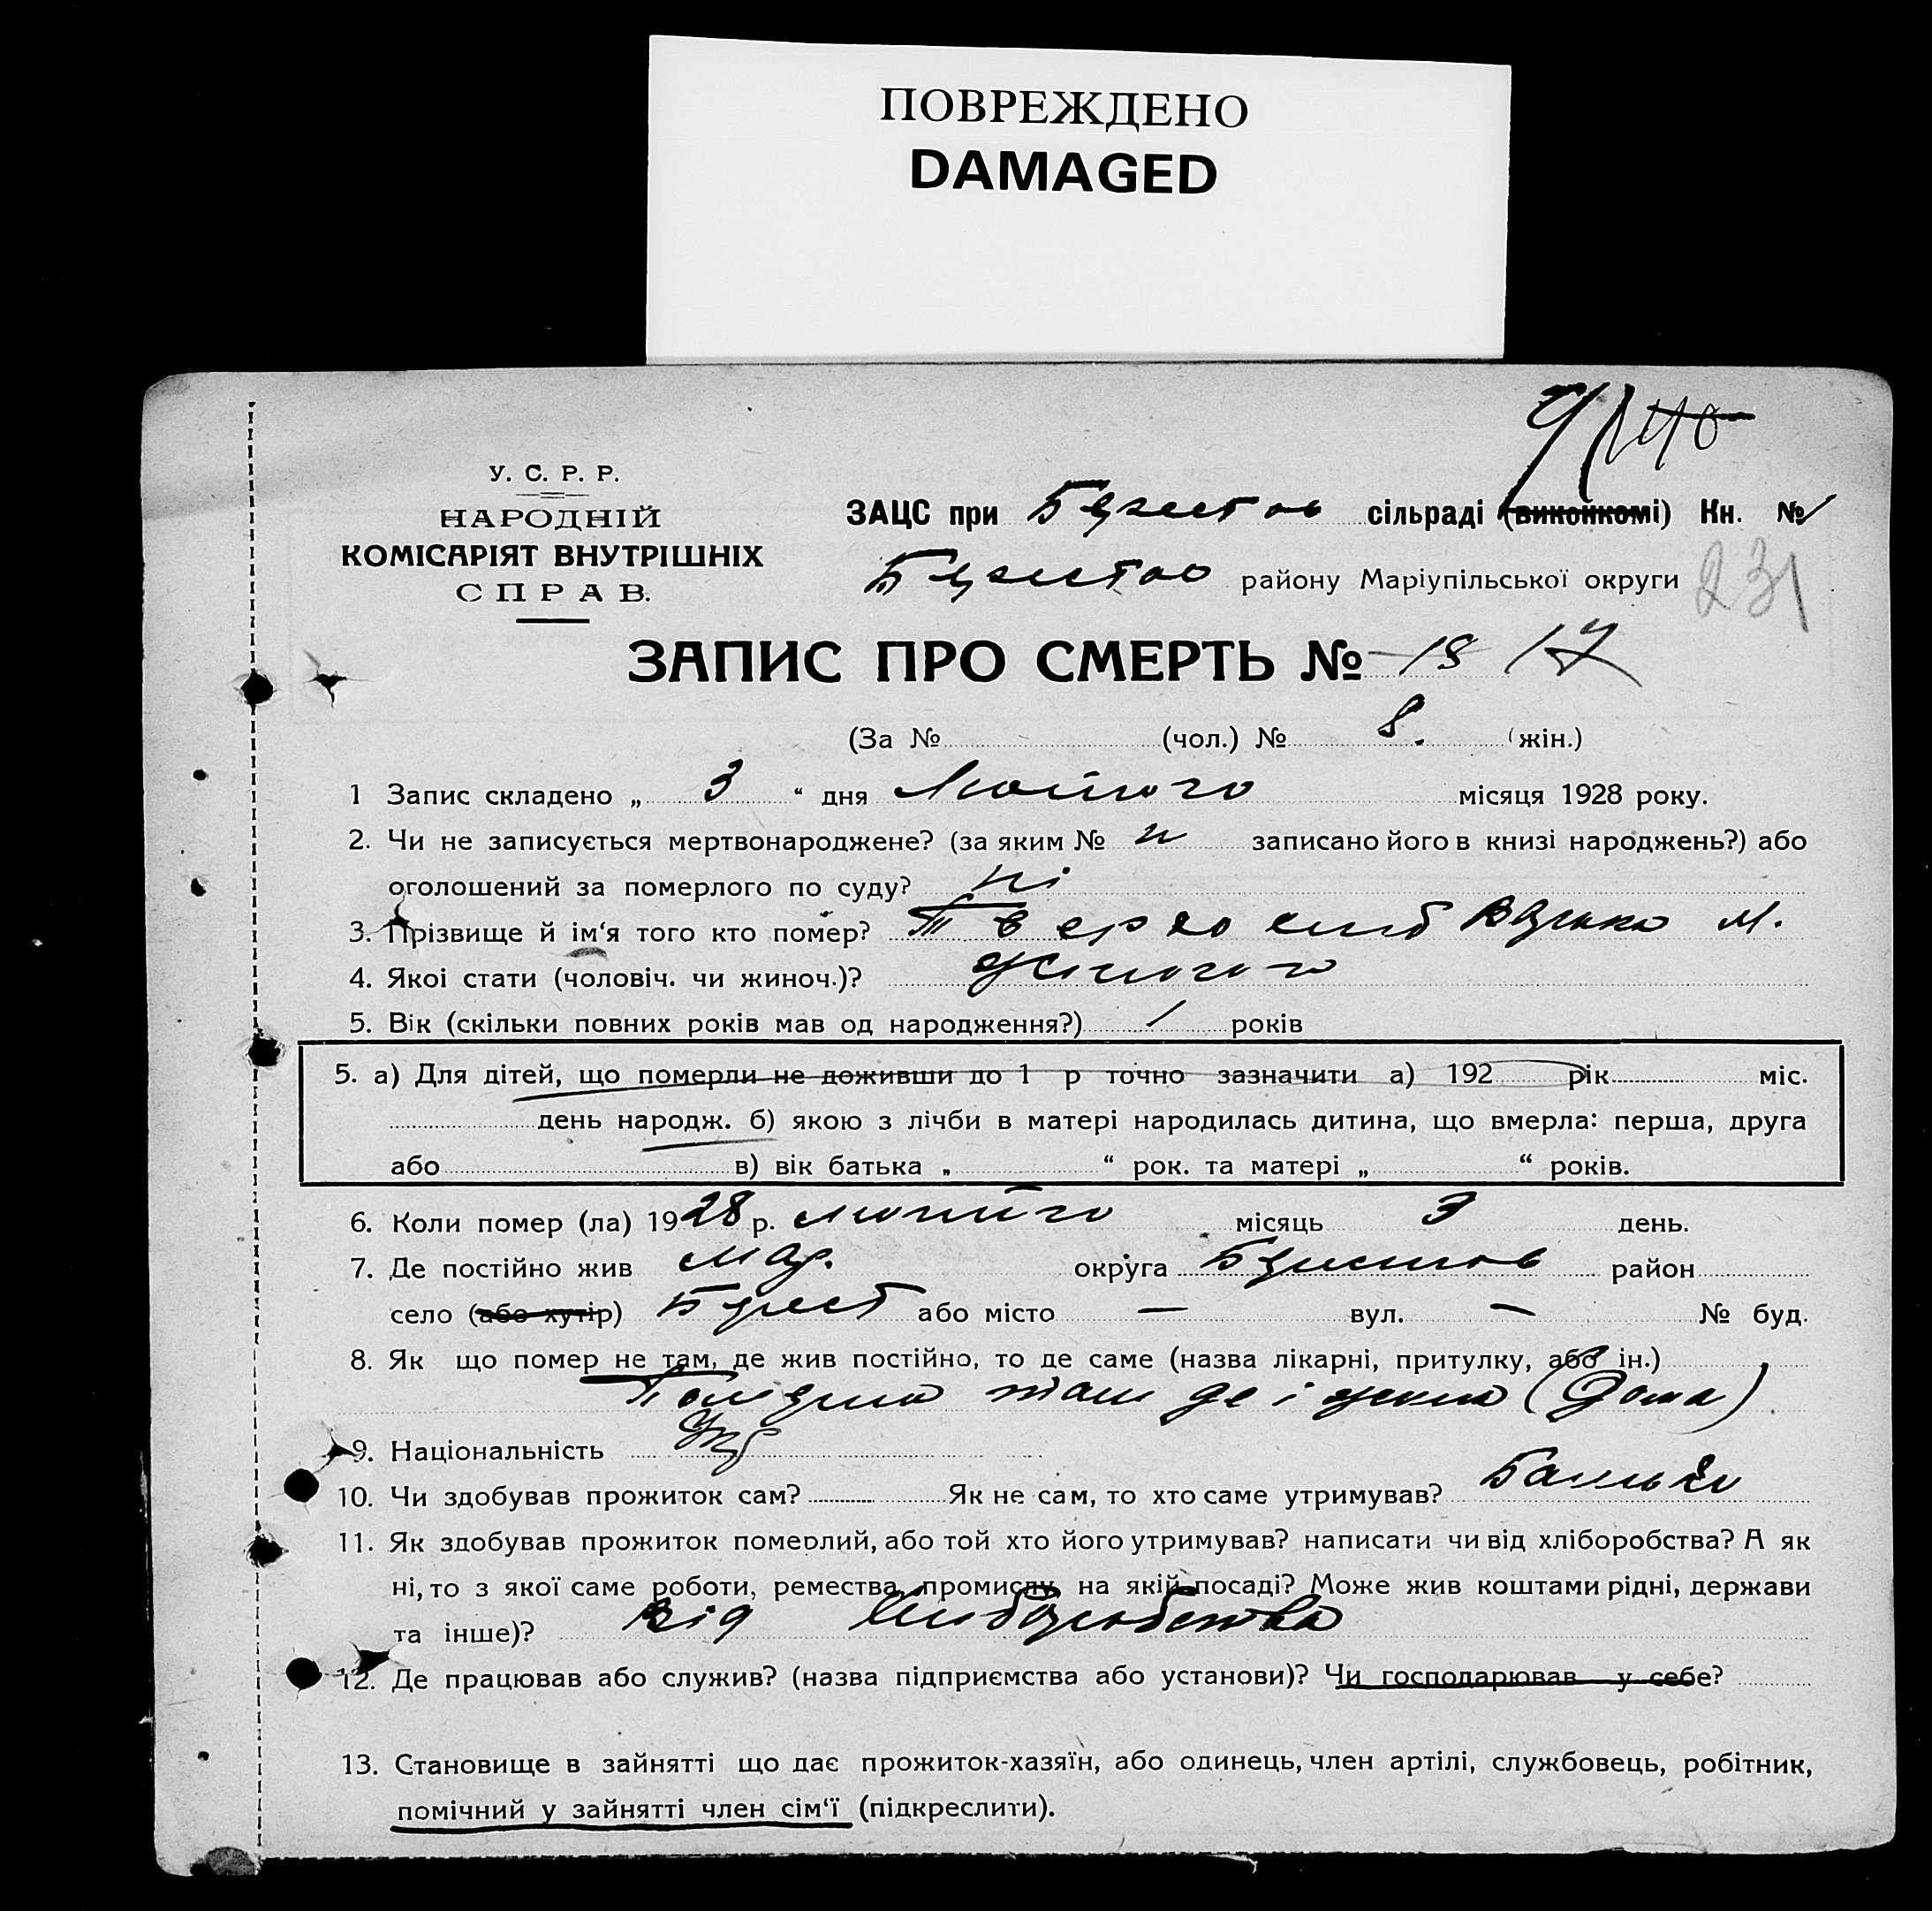 ПОВРЕЖДЕНО
DAMAGED
У. С. Р. Р.
НАРОДНІЙ
КОМІСАРІЯТ ВНУТРІШНІХ
СПРАВ.
ЗАЦС при сільраді (виконкомі) Кн. №
району Маріупільської округи
231
ЗАПИС ПРО СМЕРТЬ № 18 17
(За № (чол.) № 8. (жін.)
1 Запис складено „ 3 “ дня Лютого місяця 1928 року.
2. Чи не записується мертвонароджене? (за яким № записано його в книзі народжень?) або
оголошений за померлого по суду? ні
3. Прізвище й ім‘я того кто помер? М.
4. Якоі стати (чоловіч. чи жиноч.)? жіночого
5. Вік (скільки повних років мав од народження?) 1 років
5. а) Для дітей, що померли не доживши до 1 р точно зазначити а) 192 рік міс.
день народж. б) якою з лічби в матері народилась дитина, що вмерла: перша, друга
або в) вік батька „ “ рок. та матері „ “ років.
6. Коли помер (ла) 1928 р. лютого місяць 3 день.
7. Де постійно жив Мар. округа район
село (або хутір) або місто — вул. — № буд.
8. Як що помер не там, де жив постійно, то де саме (назва лікарні, притулку, або ін.)
там де і жила (Дома)
9. Національність
10. Чи здобував прожиток сам? Як не сам, то хто саме утримував? Батько
11. Як здобував прожиток померлий, або той хто його утримував? написати чи від хліборобства? А як
ні, то з якої саме роботи, ремества, промислу, на якій посаді? Може жив коштами рідні, держави
та інше)? Від Хліборобства
12. Де працював або служив? (назва підприємства або установи)? Чи господарював у себе?
13. Становище в зайнятті що дає прожиток-хазяїн, або одинець, член артілі, службовець, робітник,
помічний у зайнятті член сім‘ї (підкреслити).